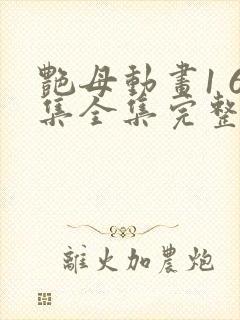 艷母動畫1 6
集全集完整
離火加農炮